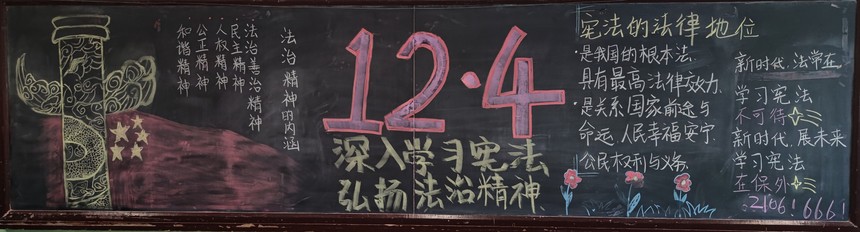 法治精神的内涵
法治善治精神
民主精神
人权精神
公正精神
和谐精神
12·4
深入学习宪法
弘扬法治精神
宪法的法律地位
·是我国的根本法.
具有最高法律效力.
·是关系国家前途与
命运,人民幸福安宁.
公民权利与义务.
新时代,法常在,
学习宪法
不可待
新时代,展未来
学习宪法
在保外
2106!666!